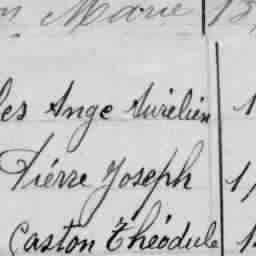 Marie 18
les Ange Aurélien 1
Piérre Joseph 1,
Caston Théodule 1